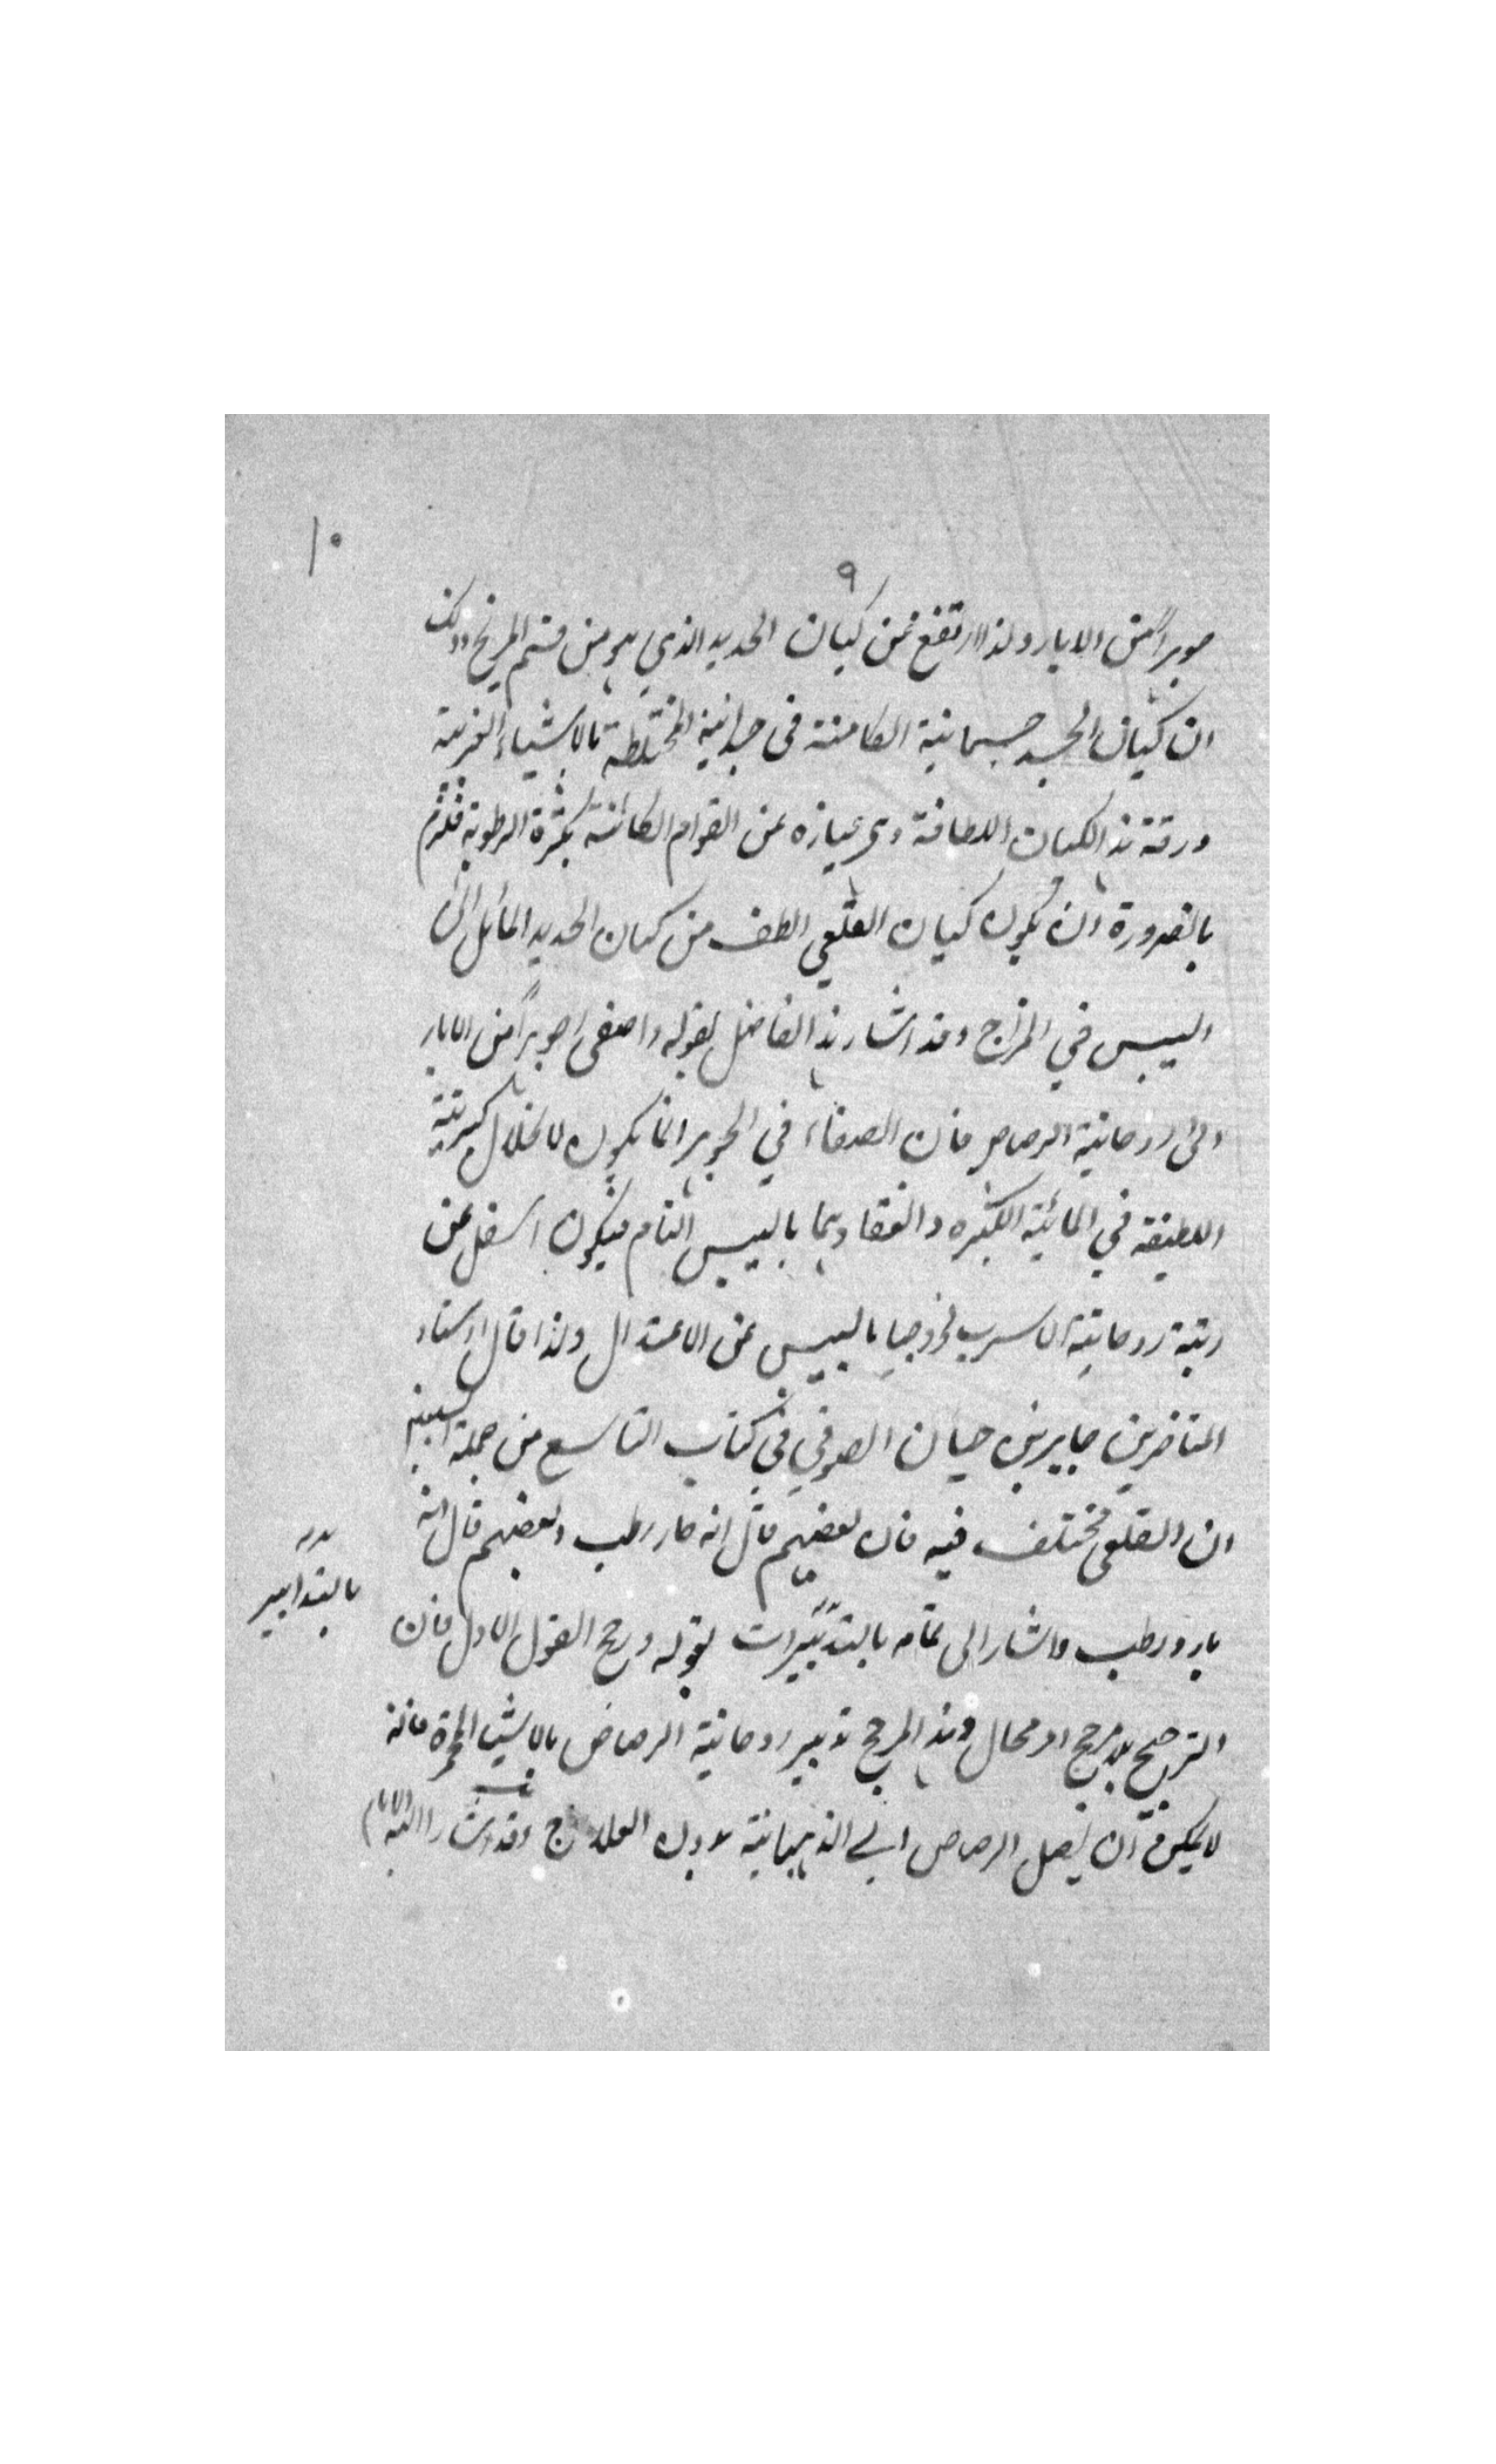 ١٠
٩
جوهراً من الابار ولذا ارتفع عن كيان الحديد الذي هو من قسم المريخ وذلك
ان كيان الجسد جسمانية الكامنة في جوانية المختلطة بالاشياء الغريبة
ورقة هذا الكيان اللطافة وهي عبارة عن القوام الكائنة بكثرة الرطوبة فلزم
بالضرورة ان يكون كيان القلعي الطف من كيان الحديد المائل الى
اليبس في المزاج وقد اشار هذا الفاضل بقوله واصفى جوهراً من الابار
الى روحانية الرصاص فان الصفاء في الجوهر انما يكون لانحلال كبريتية
اللطيفة في المائية الكثيره وانعقادهما باليبس التام فيكون اسفل عن
رتبة روحانية الاسرب لخروجها باليبس عن الاعتدال ولذا قال استاد
المتاخرين جابر بن حيان الصوفي في كتاب التاسع من جملة السبعين
ان القلعي مختلف فيه فان بعضهم قال انه حار رطب وبعضهم قال انه
بارد رطب واشار الى تمامه بالتدبيرات بقوله ورجح القول الاول فان
بالتدابير
الترجيح بلا مرجح امر محال وهذا المرجح تدبير روحانية الرصاص بالاشيا المحمرة فانه
لا يمكن ان يصل الرصاص الى الذهبانية بدون العلاج وقد اشار اليه الامام